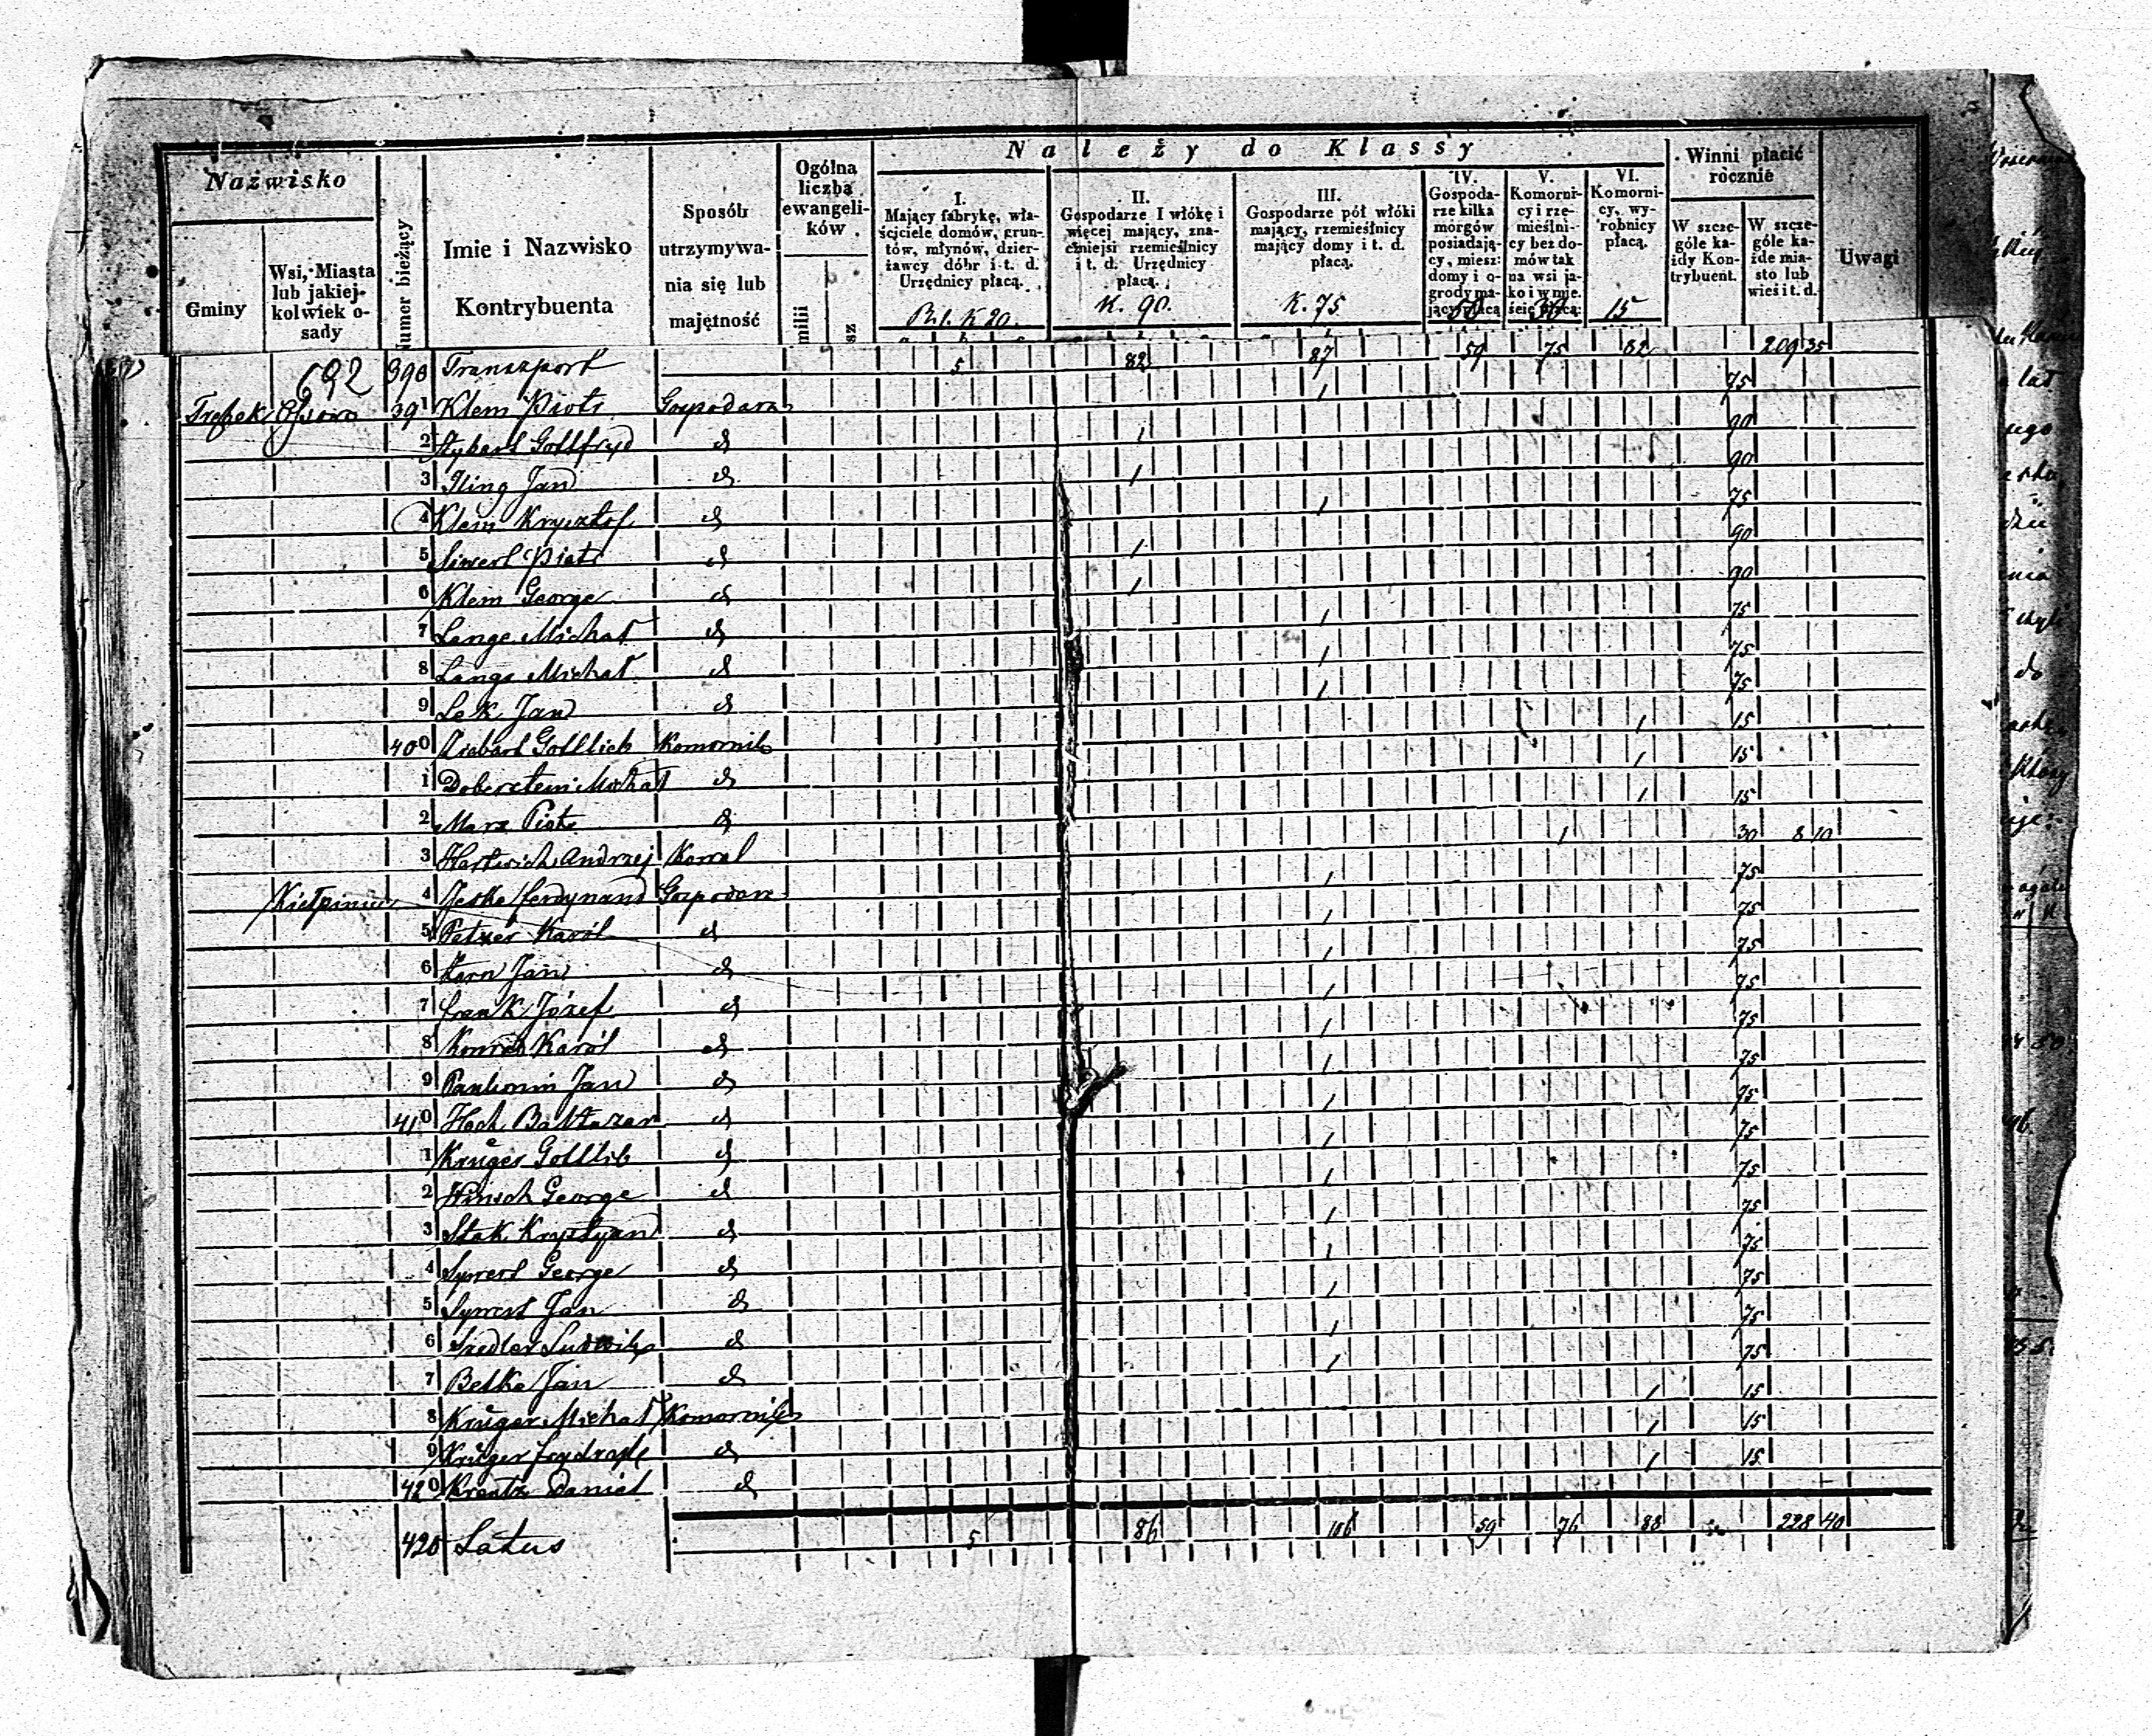 Należy do Klassy
Nazwisko
Gminy
Wsi, Miasta lub jakiejkolwiek osady
Numer bieżący
Imie i Nazwisko Kontrybuenta
Sposób utrzymywania się lub majętność
Ogólna liczba ewangelików
milii
sz
I. Mający fabrykę, właściciele domów, gruntów, młynów, dzierżawcy dóbr i t. d. Urzędnicy płacą. R. 1. K 20.
II. Gospodarze I włókę i więcej mający, znaczniejsi rzemieślnicy i t. d. Urzędnicy płacą. K. 90.
III. Gospodarze pół włóki mający, rzemieślnicy mający domy i t. d. płacą. K. 75
IV. Gospodarze kilka morgów posiadający, miesz: domy i ogrody mający płacą 50
V. Komornicy i rzemieślnicy bez domów tak na wsi jako i w mieście płacą: 30
VI. Komornicy, wyrobnicy płacą. 15
Winni płacić rocznie
W szczególe każdy Kontrybuent.
W szczególe każde miasto lub wieś i t. d.
Uwagi
692 390 Transport 5 82 87 59 75 82 209 35
391 Klem Piotr Gospodarz 1 75
2 Gottfryd d 1 90
3 Iling Jan d 1 90
4 Klem Krysztof d 1 75
5 Siwert Piotr d 1 90
6 Klem George d 1 90
7 Lange Michał d 1 75
8 Lange Michał d 1 75
9 Lek Jan d 1 75
400 Gottlieb Komornik 1 15
1 Dobersztein Michał d 1 15
2 Marx Piotr d 1 15
3 Hartwich Andrzej Kowal 1 30 8 10
4 Jeske Ferdynand Gospodarz 1 75
5 Petzer Karól d 1 75
6 Jan d 1 75
7 Frank Józef d 1 75
8 Karól d 1 75
9 Jan d 1 75
410 Hoch Baltazar d 1 75
1 Krüger Gottlib d 1 75
2 George d 1 75
3 Stak Krystyan d 1 75
4 Sywert George d 1 75
5 Sywert Jan d 1 75
6 Ludwik d 1 75
7 Betke Jan d 1 75
8 Krüger Michał Komornik 1 15
9 Krüger Frydrych d 1 15
420 Kreutz Daniel d 1 15
420 Latus 5 86 106 59 76 88 228 40